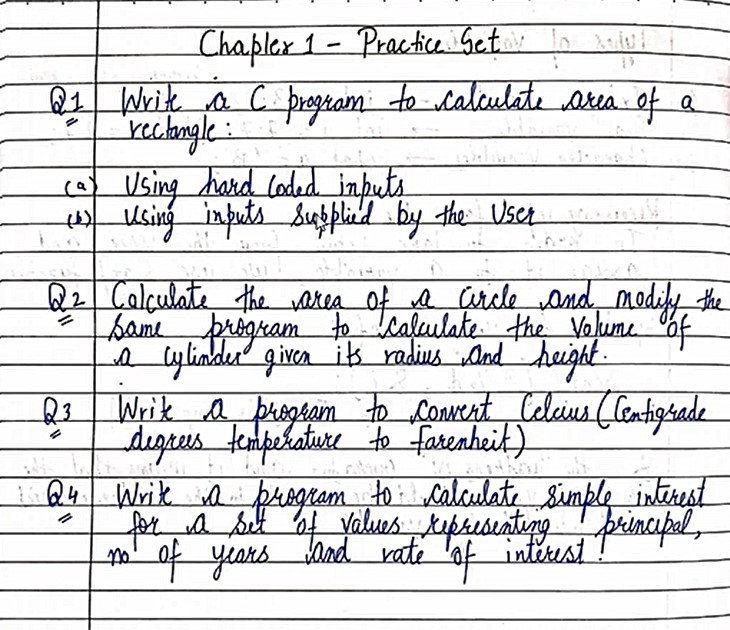 Chapter 1 - Practice Set
Q1 Write a C program to calculate area of a
rectangle:
(a) Using hard coded inputs
(b) Using inputs supplied by the User
Q2 Calculate the area of a circle and modify the
same program to calculate the volume of
a cylinder given its radius and height.
Q3 Write a program to convert Celcius (Centigrade
degrees temperature to farenheit)
Q4 Write a program to calculate simple interest
for a set of values representing principal,
no of years and rate of interest!